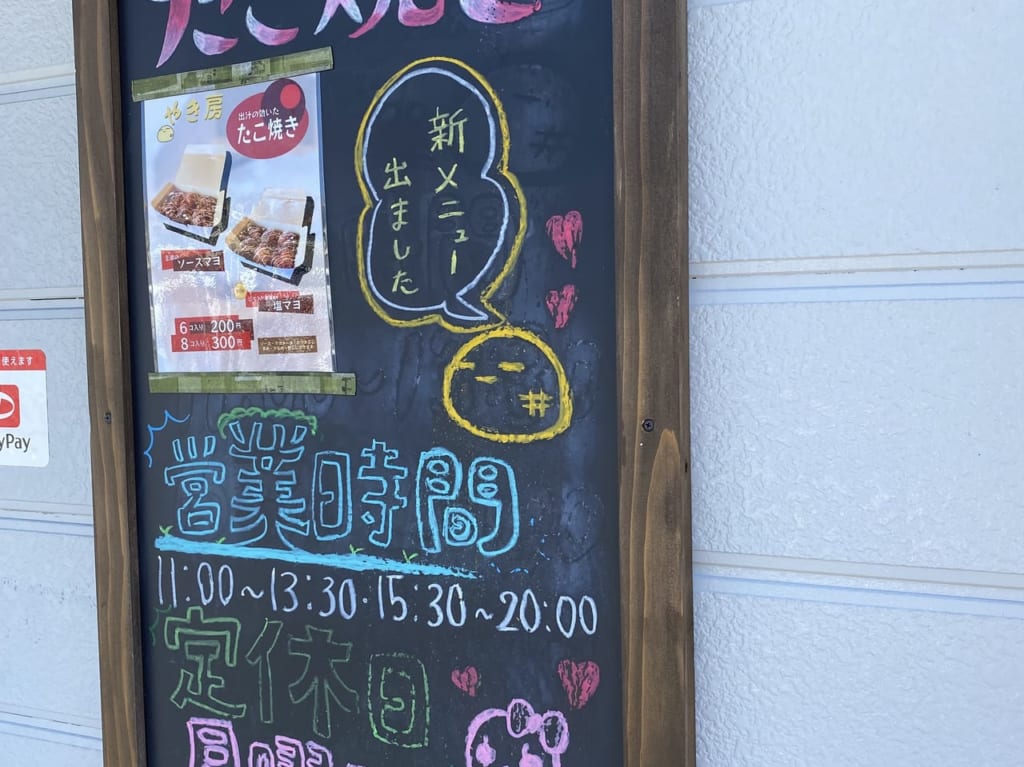 たこ焼き
やき房
出汁の効いた
たこ焼き
ソースマヨ
塩マヨ
6コ入り 200円
8コ入り 300円
新メニュー
出ました
使えます
yPay
営業時間
11:00～13:30・15:30～20:00
定休日
月曜